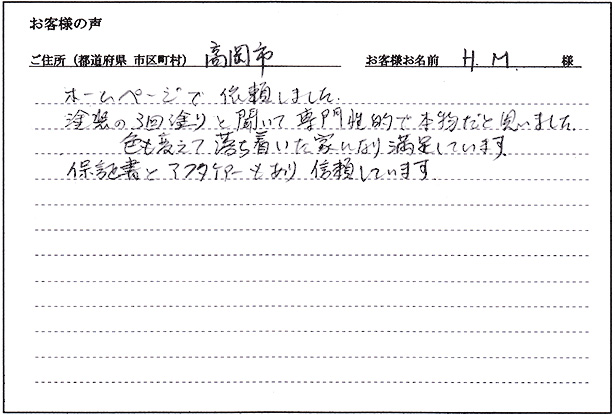 お客様の声
ご住所（都道府県 市区町村） 高岡市 お客様お名前 H.M. 様
ホームページで依頼しました.
塗装の3回塗りと聞いて専門性的で本物だと思いました.
色も変えて落ち着いた家になり満足しています.
保証書とアフタケアーもあり信頼しています.